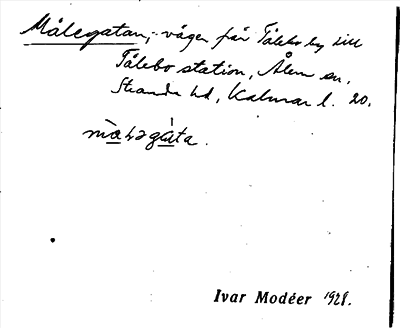 Målegatan, vägen från Tålebo by till
Tålebo station, Ålem sn,
Stranda hd, Kalmar l. 20.
màləgàta.
Ivar Modéer 1928.